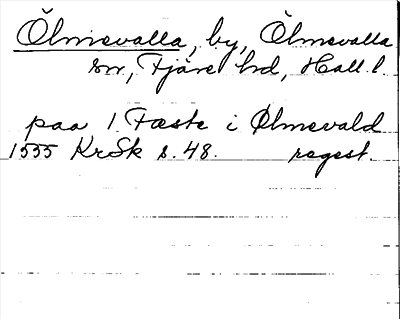 Ölmevalla, by, Ölmevalla
sn, Fjäre hd, Hall. l.
paa 1 Fæste i Ølmevald
1555 KrSk s. 48. regest.